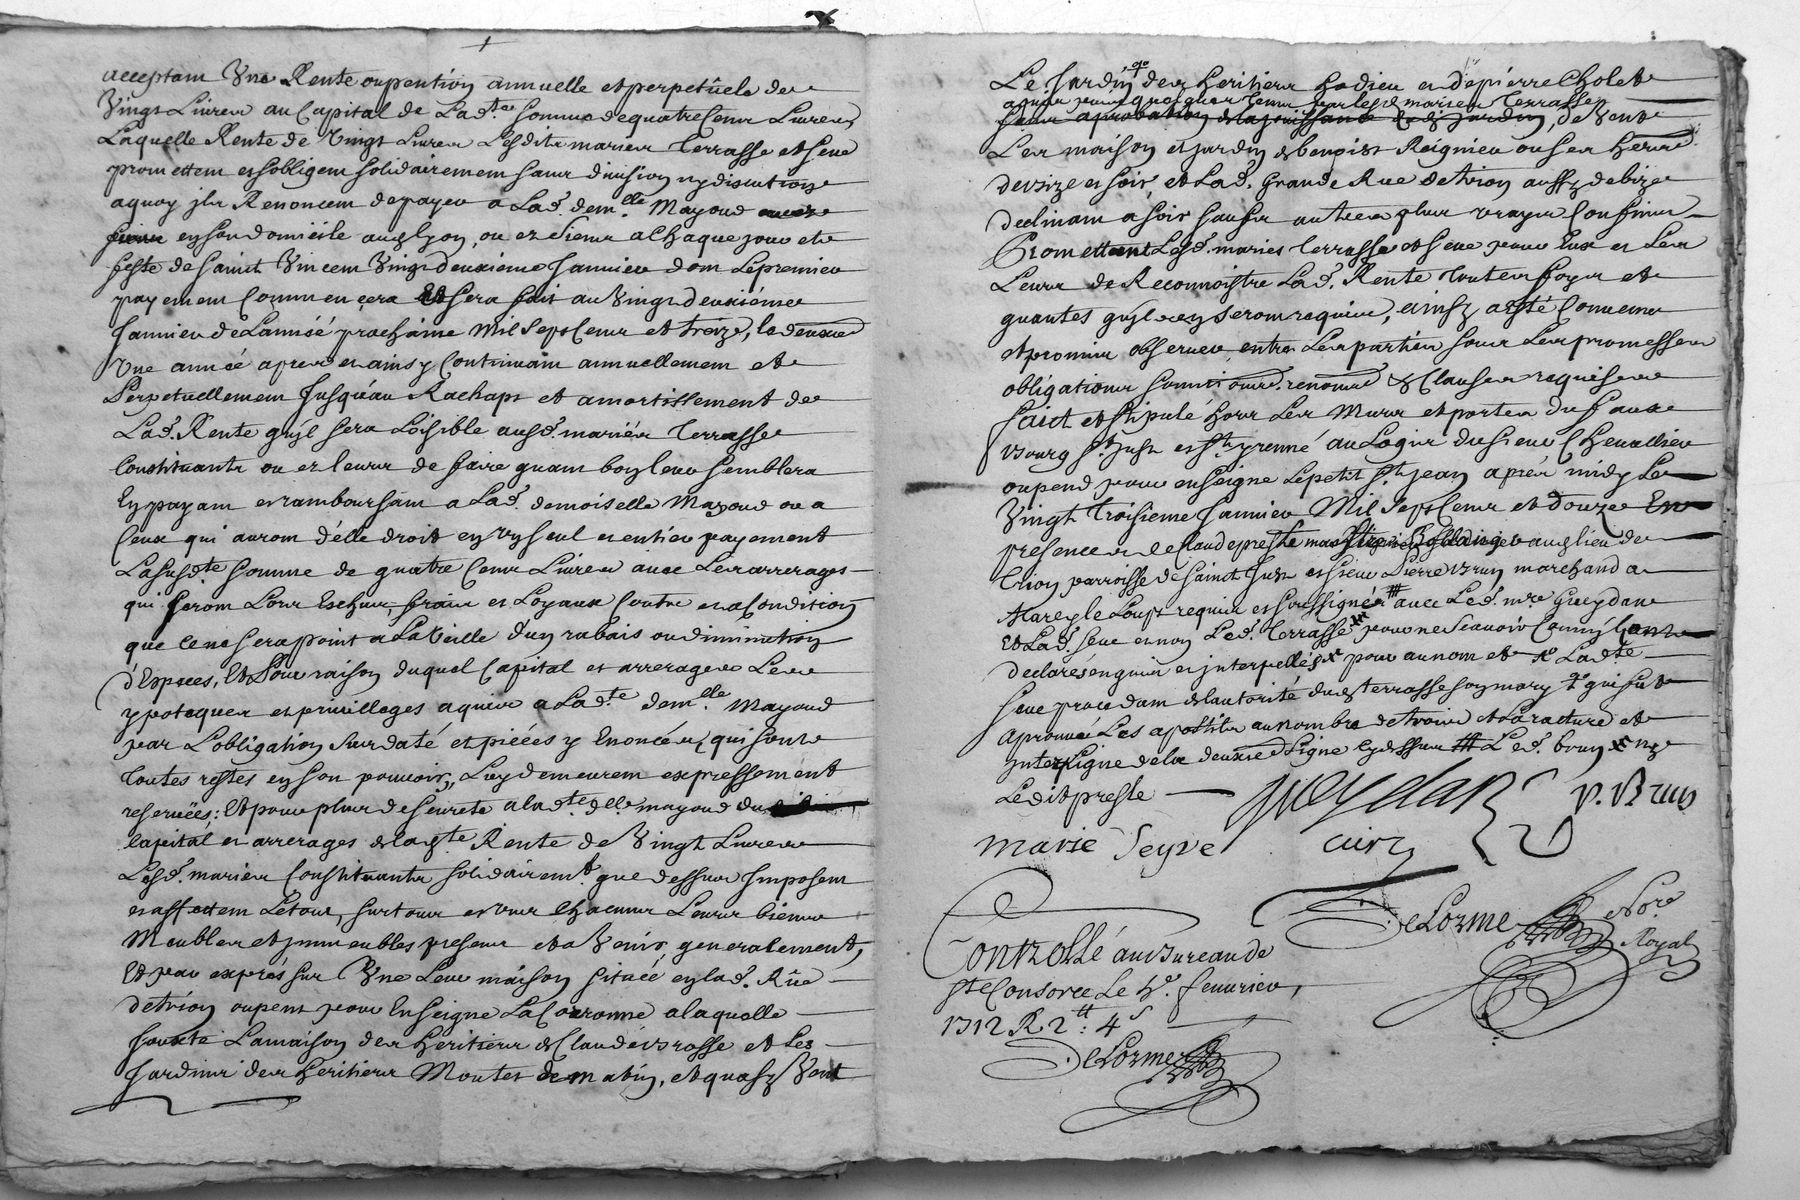 acceptam Une Rente ou pention annuelle et perpetüele de
Vingt Livres au Capital de Lad.te Somme de quatre Cent Livres,
Laquelle Rente de Vingt Livres Lesdits mariers Terrasse et Seve
promettem et sobligem solidairemem sans division ny discution
a quoy ils Renoncem de payer a Lad. dem.lle Mayoud
en son domicile aud. Lyon, ou es siens a Chaque jour et
feste de Sainct Vincem Vingt deuxieme Jannier dom Le premier
payemem Commencera Et sera fait au Vingt deuxiéme
Jannier de L'année prochaine Mil Sept Cent et treize, la deuxe
Une année apres et ainsy Continuain annuellemem et
Perpetuellemem Jusqu'au Rachapt et amortissement de
Lad. Rente qu'il sera Loisible ausd. mariés Terrasse
Constituants ou es leurs de faire quam bon leur semblera
En payam et ramboursam a Lad. demoiselle Mayoud ou a
Ceux qui aurom d'elle droit en un seul et entier payement
La susd.te Somme de quatre Cent Livres avec Les arrerages
qui serom Lors Escheus, frais et Loyaux Coutx et a Condition
que ce ne sera point a La Veille d'un rabais ou diminution
d'Especes, Et Pour raison duquel Capital et arrerages Les
ypoteques et privilleges aquis a Lad.te dem.lle Mayoud
par L'obligation Sus daté et piéces y Enoncées, qui sont
toutes restes en son pouvoir, Luy demeurem expressement
reservées: Et pour plus de Seureté a lad.te d.lle mayoud du
capital et arrerages de lad.te Rente de Vingt Livres
Lesd. mariés Constituants solidairem.t que dessus Imposem
et affettem Letout, sur tous et uns Chacuns Leurs biens
Meubles et immeubles presens et a Venir generalement,
Et par exprés sur Une Leur maison située en lad. Rüe
de trion oupent pour Enseigne La Couronne a laquelle
Jouxte La maison des heritiers de Claude Brosse et Les
Jardins des heritiers Moutet de matin, et quasy Vent
Le Jardin des heritiers hodieu et de pierre Cholet
sans aprobation de la jouissance dud. jardin, de Vent
Les maison et jardin de benoist Reignieu ou ses heres
de bize et soir, et Lad. Grande Rue de trion aussy de bize
declinam a soir sauf autres plus vrayes Confins
Promettant Lesd. mariés terrasse et Seve pour Eux et Les
Leurs de Reconnoistre Lad. Rente toutes foys et
quantes qu'ils en serom requis, ainsy arté Convenu
et promis observer entre Les parties sous Les promesses
obligations soumi ons. renonces & Clauses requises
faict et stipulé hors Les Murs et portes du faux
bourg S.t Just et S.t yrenné au Logis du sieur Chevallier
ou pend pour enseigne Le petit S.t Jean aprés midy Le
Vingt troisieme Jannier Mil Sept Cent et douze En
presence de Claude preste boulanger aud. lieu de
trion parroisse de Sainct Just et sieur Pierre brun marchand a
Marcy le Loup requis et soussignés avec Led. m.re Gueydan
Et Lad. Seve et non Led. terrasse pour ne scavoir Comm'il ont
declaré enquis et interpellés pour au nom et Lad.te
Seve procedam de lautorité dud. terrasse son mary qui sut
aprouvé Les apostils au nombre de trois et rature et
interligne de la deuxe Ligne cydessus Led. brun
Ledit preste
Gueydan
P. Brun
marie Seyve
curé
DeLorme
no.re
Royal
Controllé au bureau de
S.te Consorce Le fevvrier
1712 R 2 tt: 4 s
DeLorme